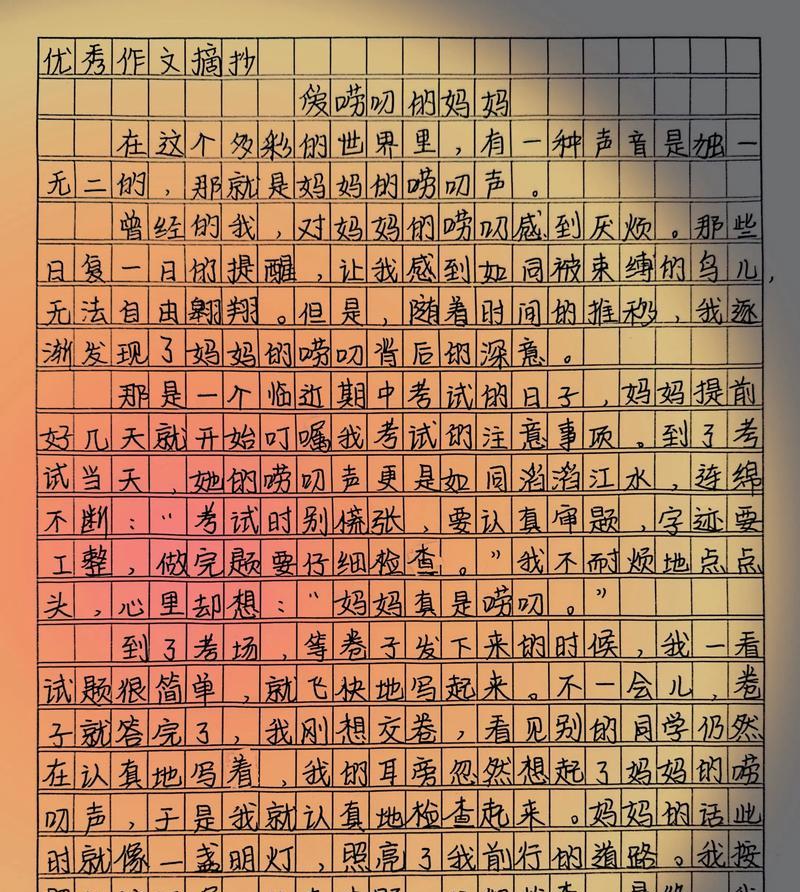 优秀作文摘抄
爱唠叨的妈妈
在这个多彩的世界里，有一种声音是独一
无二的，那就是妈妈的唠叨声。
曾经的我，对妈妈的唠叨感到厌烦。那些
日复一日的提醒，让我感到如同被束缚的鸟儿，
无法自由翱翔。但是，随着时间的推移，我逐
渐发现了妈妈的唠叨背后的深意。
那是一个临近期中考试的日子，妈妈提前
好几天就开始叮嘱我考试的注意事项。到了考
试当天，她的唠叨声更是如同滔滔江水，连绵
不断：“考试时别慌张，要认真审题，字迹要
工整，做完题要仔细检查。”我不耐烦地点点
头，心里却想：“妈妈真是唠叨。”
到了考场，等卷子发下来的时候，我一看
试题很简单，就飞快地写起来。不一会儿，卷
子就答完了，我刚想交卷，看见别的同学仍然
在认真地写着，我的耳旁忽然想起了妈妈的唠
叨声，于是我就认真地检查起来。妈妈的话此
时就像一盏明灯，照亮了我前行的道路。我按